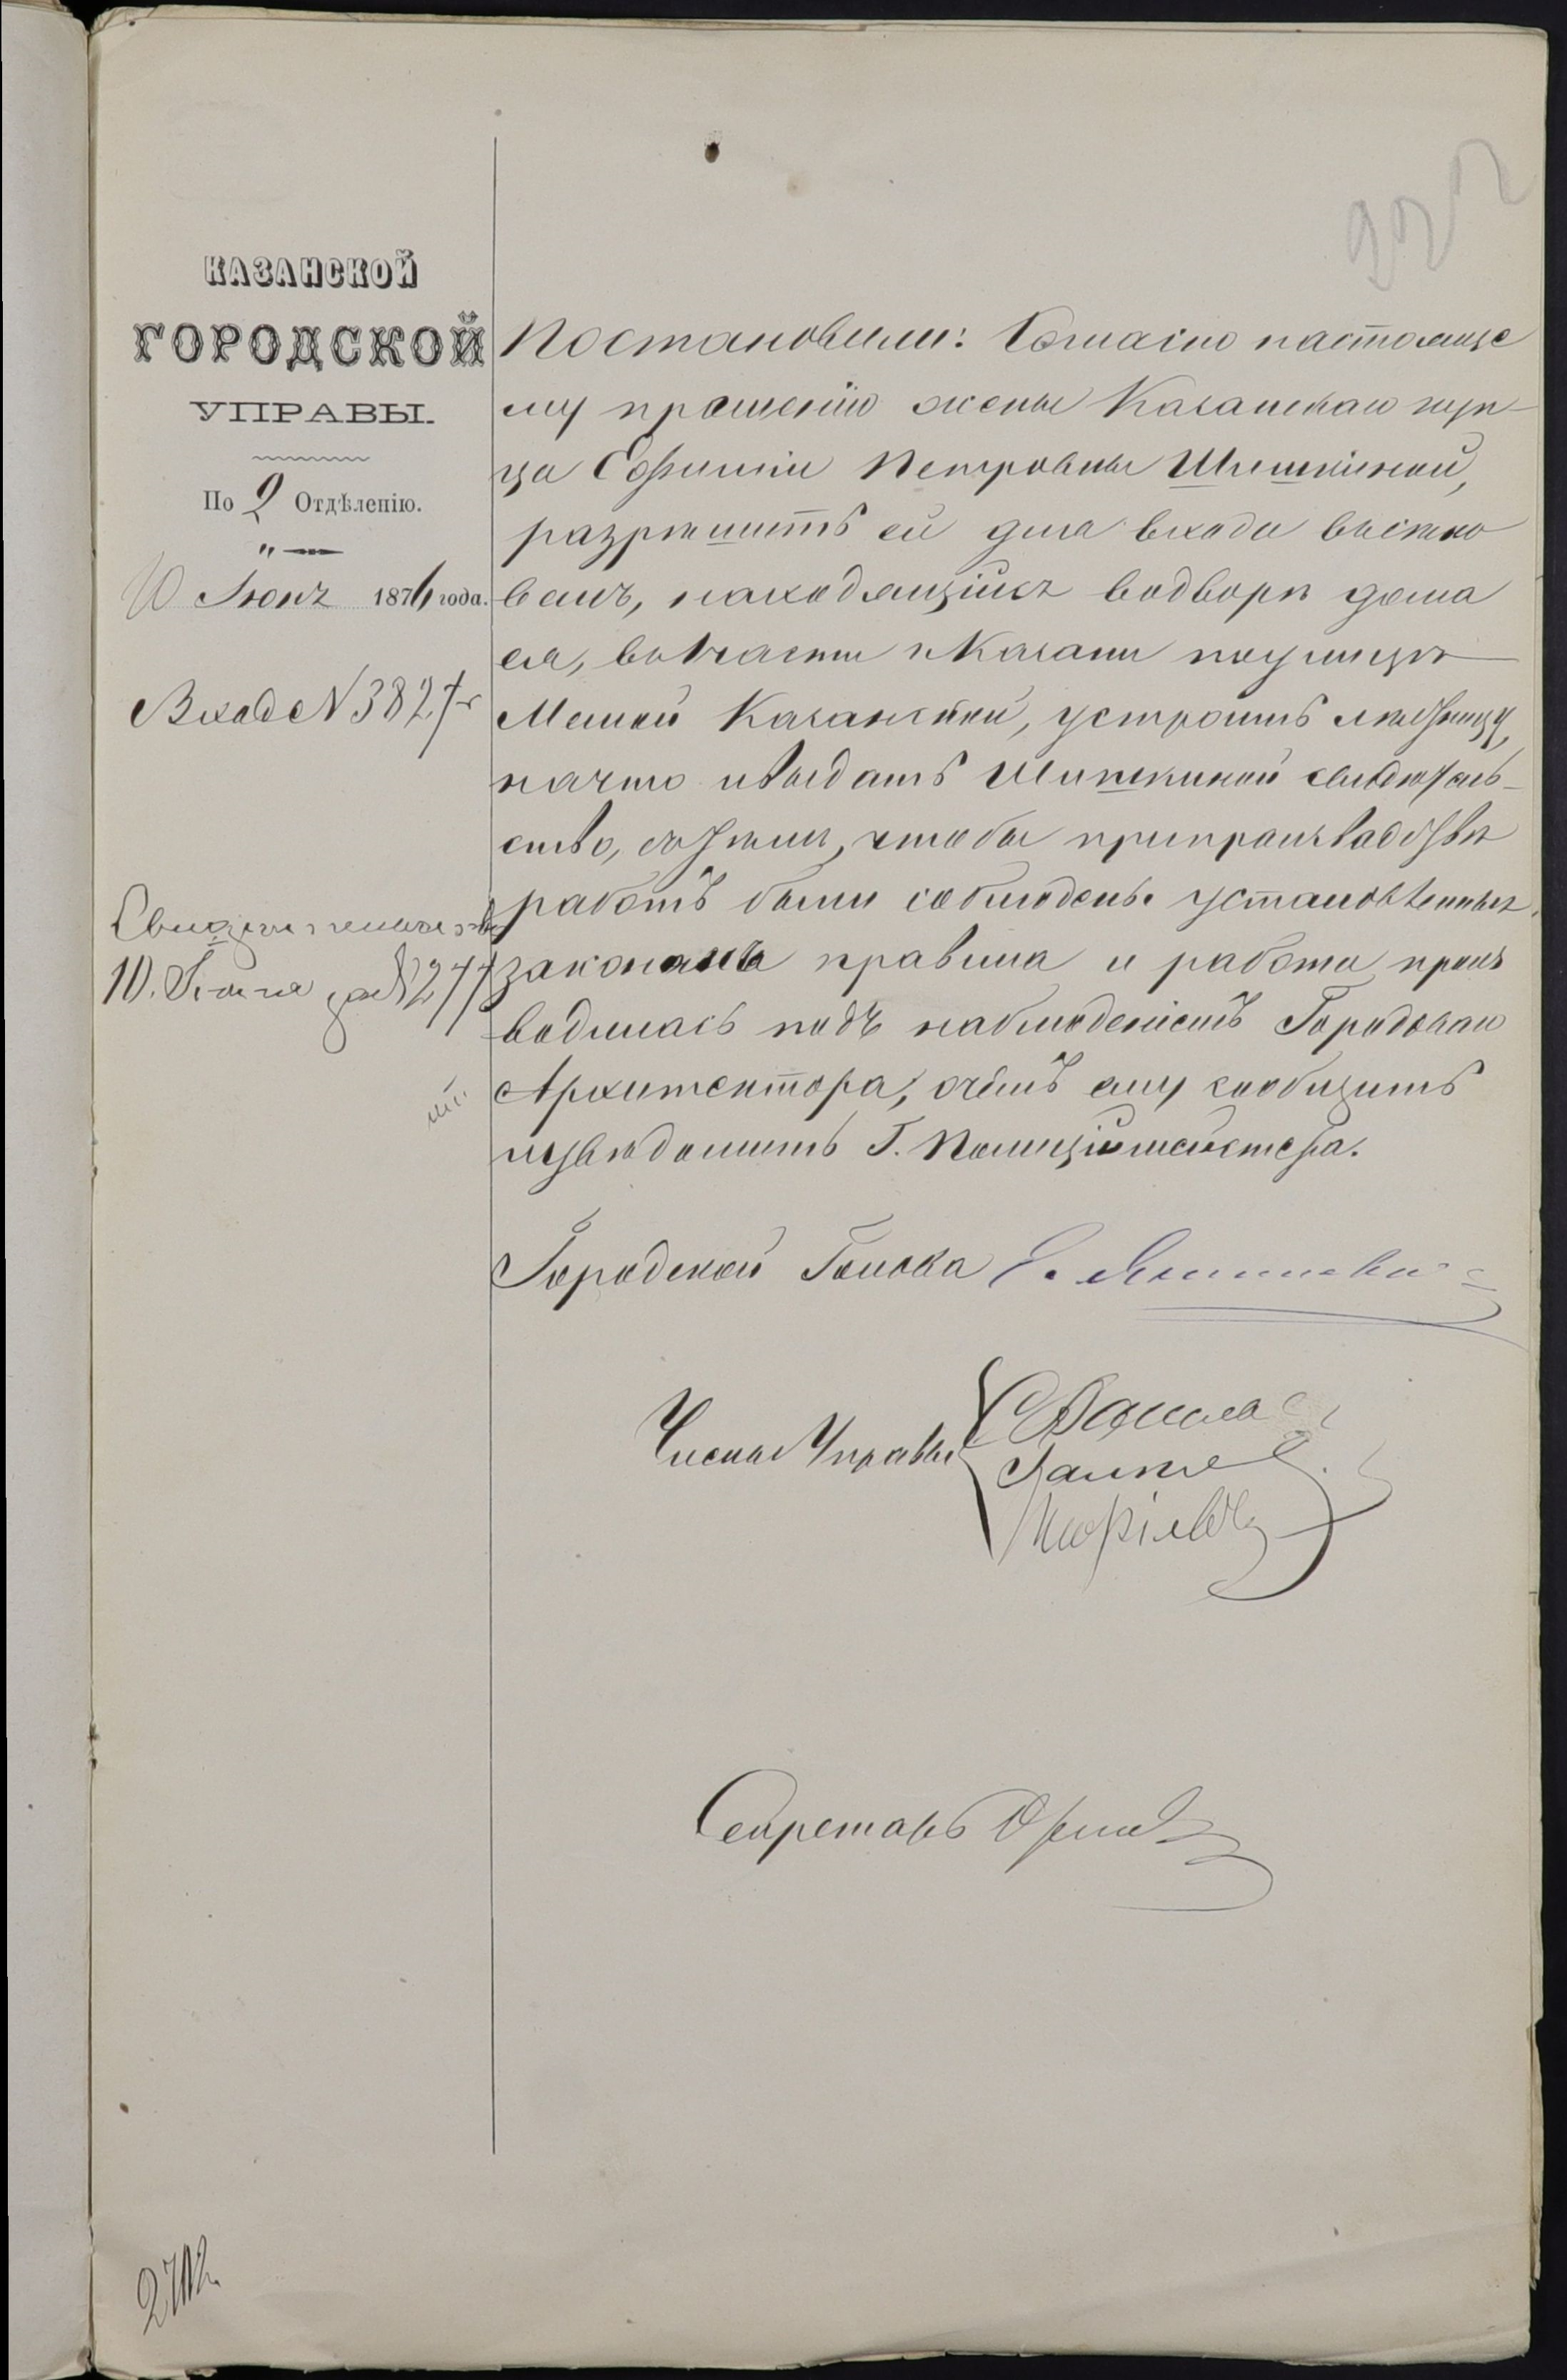 КАЗАНСКОЙ
ГОРОДСКОЙ
УПРАВЫ.
По 2 Отдѣленію.
10 Іюня 1876 года.
Вход № 3827
Свидѣтельство
10 Іюня за № 277
Постановили: Согласно настояще
му прошенію жены Казанскаго куп-
ца Евфиміи Петровны Шишкиной,
разрѣшить ей для входа
находящійся во дворѣ дома
ея, въ 1 части г. Казани по улицѣ
Малой Казанской, устроить лѣстницу,
на что и выдать Шишкиной свидѣтель-
ство, съ тѣмъ, чтобы при производствѣ
работъ были соблюдены установленныя
закономъ правила и работа произ
водилась подъ наблюденіемъ Городоваго
Архитектора, о чемъ ему сообщить
и увѣдомить Г. Полиціймейстера.
Городской Голова Э. Янишевскій
Члены Управы
Секретарь